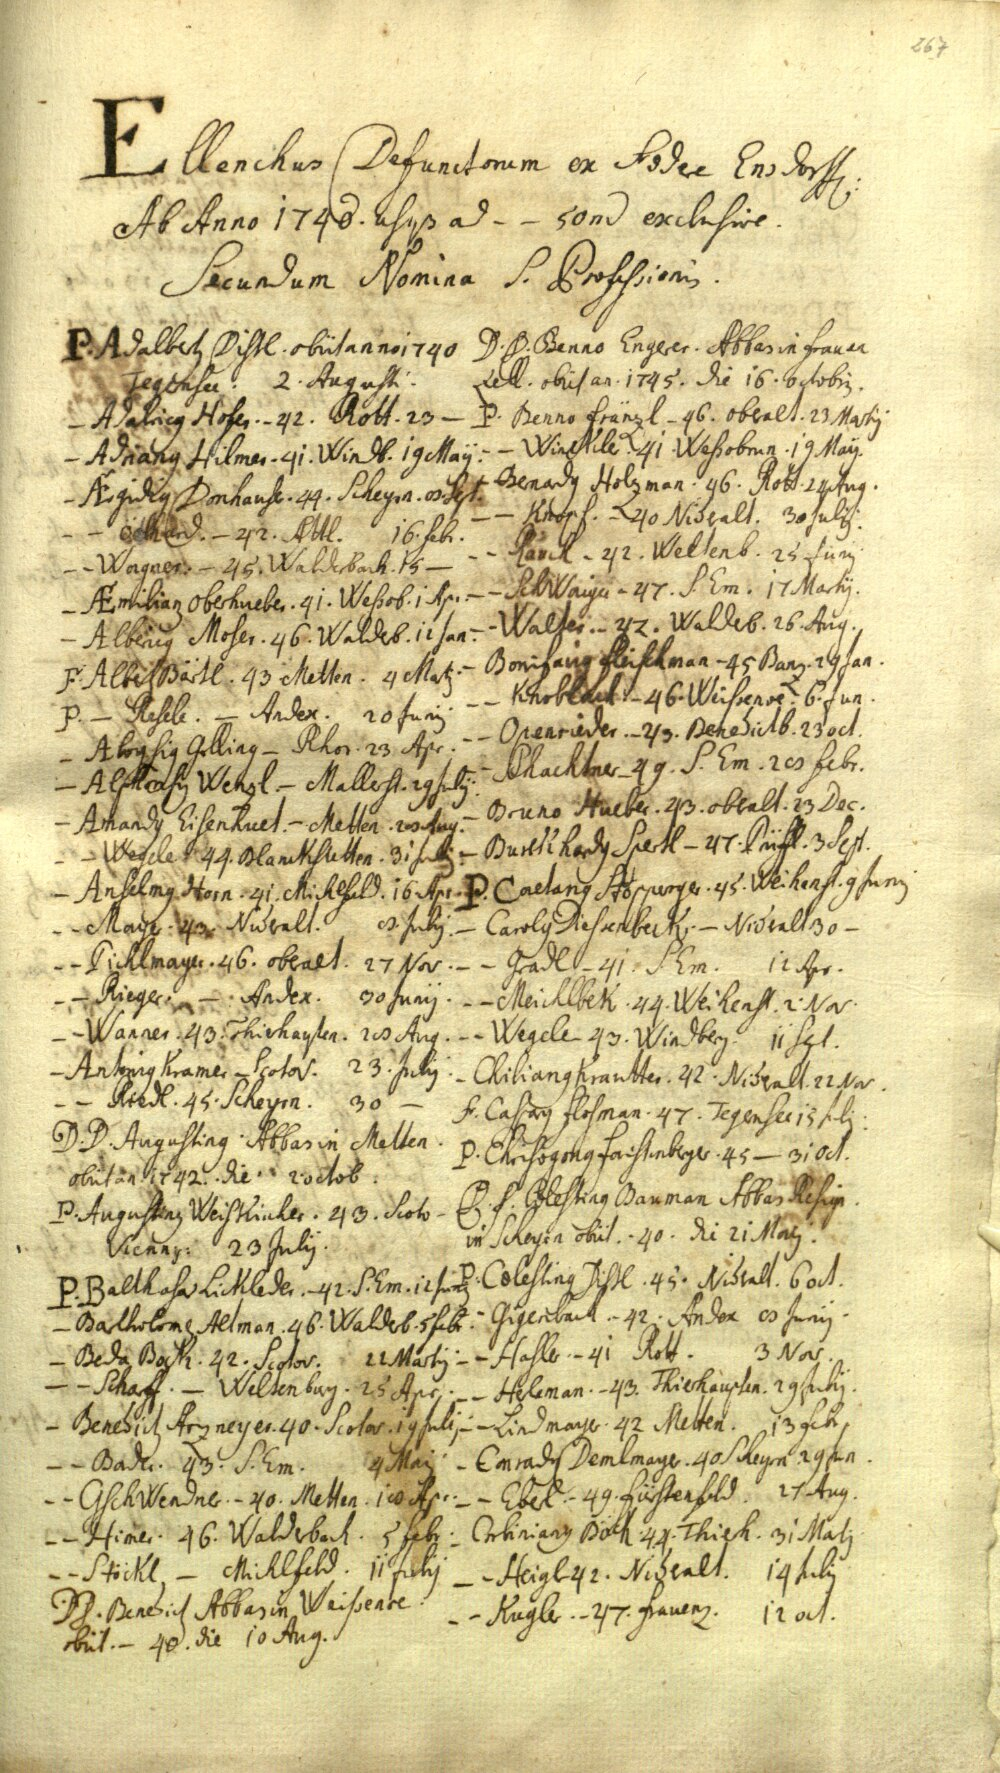 267
Ellenchus Defunctorum ex Fodere Ensdorff:
Ab Anno 1740. usqz ad - - 50m exclusive.
Secundum Nomina S. Professionis.
P. Adalbertz Distl. obiit anno 1740
Tegensee. 2. Augusti.
- Adalricg Hofer. - 42. Rott. 23 -
- Adriang Hilmer. 41. Windb. 19 May.
- Ægidig Donhauser. 44. Scheyrn. Sept.
- - . - 42. Attl. 16. febr.
- - Wagner. - 45. Walderbach. 15 -
- Æmiliang Oberhueber. 41. Wessob. 1 Apr.
- Albericg Moser. 46. Walderb. 12 Jan.
F. Albert Bärtl. 43 Metten. 4 Martz.
P. - Resele. - Andex. 20 Junij
- Aloysig Gelling - Rhor. 23 Apr.
- Wenzl. - Mallerst. 29 Julij.
- Amandg Eisenhuet. - Metten. Aug.
- - Wegele 44. Blanckstetten. 31 Julij
- Anselmg Horn. 41. Michlfeld. 16 Apr.
- - Mayr. 43. Nidralt. 8 Julij.
- - Pichlmayer. 46. obralt. 27 Nov.
- - Rieger. - Andex. 30 Junij.
- - Wanner. 43. Thierhaupten. Aug.
- Antonig Kramer - Scotor. 23. Julij.
- - Riedl. 45. Scheyrn. 30 -
D. D. Augusting Abbas in Metten.
obiit an 1742. die 2 octob.
P. Augusting Weiskircher. 43. Scotor
Vienny. 23 July.
P. Balthasar Lickleder. - 42. S. Em. 12 Junij
- Bartholomg Altman. 46. Walderb. 5 febr.
- Beda Bock. 42. Scotor. 22 Martij
- - Scharff. - Weltenburg. 25 Apr.
- Benedict Arzneyer. 40. Scotor. 19 Julij
- - Bader. 43. S. Em. 4 Maij
- - GschWendner. - 40. Metten. 10 Apr.
- - Himer. 46. Walderbach. 5 febr.
- - Stöckl - Michlfeld. 11 Julij
DD. Benedict Abbas in Weissenoe
obiit. - 40. die 10 Aug.
D. D. Benno Engerer. Abbas in Frauen
Zell. obiit an. 1745. die 16. octobr.
P. Benno Fränzl - 46. obralt. 23 Martij
- - Winckler. 41 Wessobrun. 19 May.
- Benardg Holzman. 46. Rott. 24 Aug.
- - Knopf. - 40 Nidralt. 30 Julij.
- - Rauch - 42. Weltenb. 25 Junij
- - SchWaiger - 47. S. Em. 17 Martij.
- - Walser. - 42. Walderb. 26 Aug.
- Bonifacig Fleischman - 45 Banz. 29 Jan.
- - Knoblach. - 46. Weissenoe. 6. Jun.
- - Openrieder. - 43. Benedictb. 23 oct.
- - Schachtner - 49. S. Em. febr.
- Bruno Hueber. 43. obralt. 23 Dec.
- Burckhardg Spertl - 47. Prüfl. 3 Sept.
P. Caetang Stopperger. 45. Weihenst. 9 Junij
- Carolg Diessenbeck. - Nidralt 30 -
- - Gradl - 41. S Em. 12 Apr.
- - Meichlbek. 44. Weihenst. 2 Nov.
- - Wegele - 43. Windberg. 11 Sept.
- Chiliang Krautter. 42. Nidralt. 22 Nov.
F. Caspar Flosman. 47. Tegensee 15 Julij.
P. Chrisogong Forstenberger. 45 - 31 oct.
D. D. Cölesting Bauman Abbas Resign.
in Scheyrn obiit. - 40. die 21 Martij.
P. Cölesting Distl. 45. Nidralt. 6 oct.
- Gigerbach - 42. Andex 8 Junij.
- - Hasler - 41 Rott. 3 Nov.
- - Helzman. - 43. Thierhaupten. 29 Julij.
- - Lindmayr. 42 Metten. 13 febr.
- Conradg Demlmayer. 40 Scheyrn 29 Jun.
- - Eberl. - 49. Fürstenfeld. 27 Aug.
- Corbiniang Böck 44. Thierh. 31 Martz
- - Heigl 42. Nidralt. 14 Julij
- - Kugler. - 47. Frauenz. 12 oct.